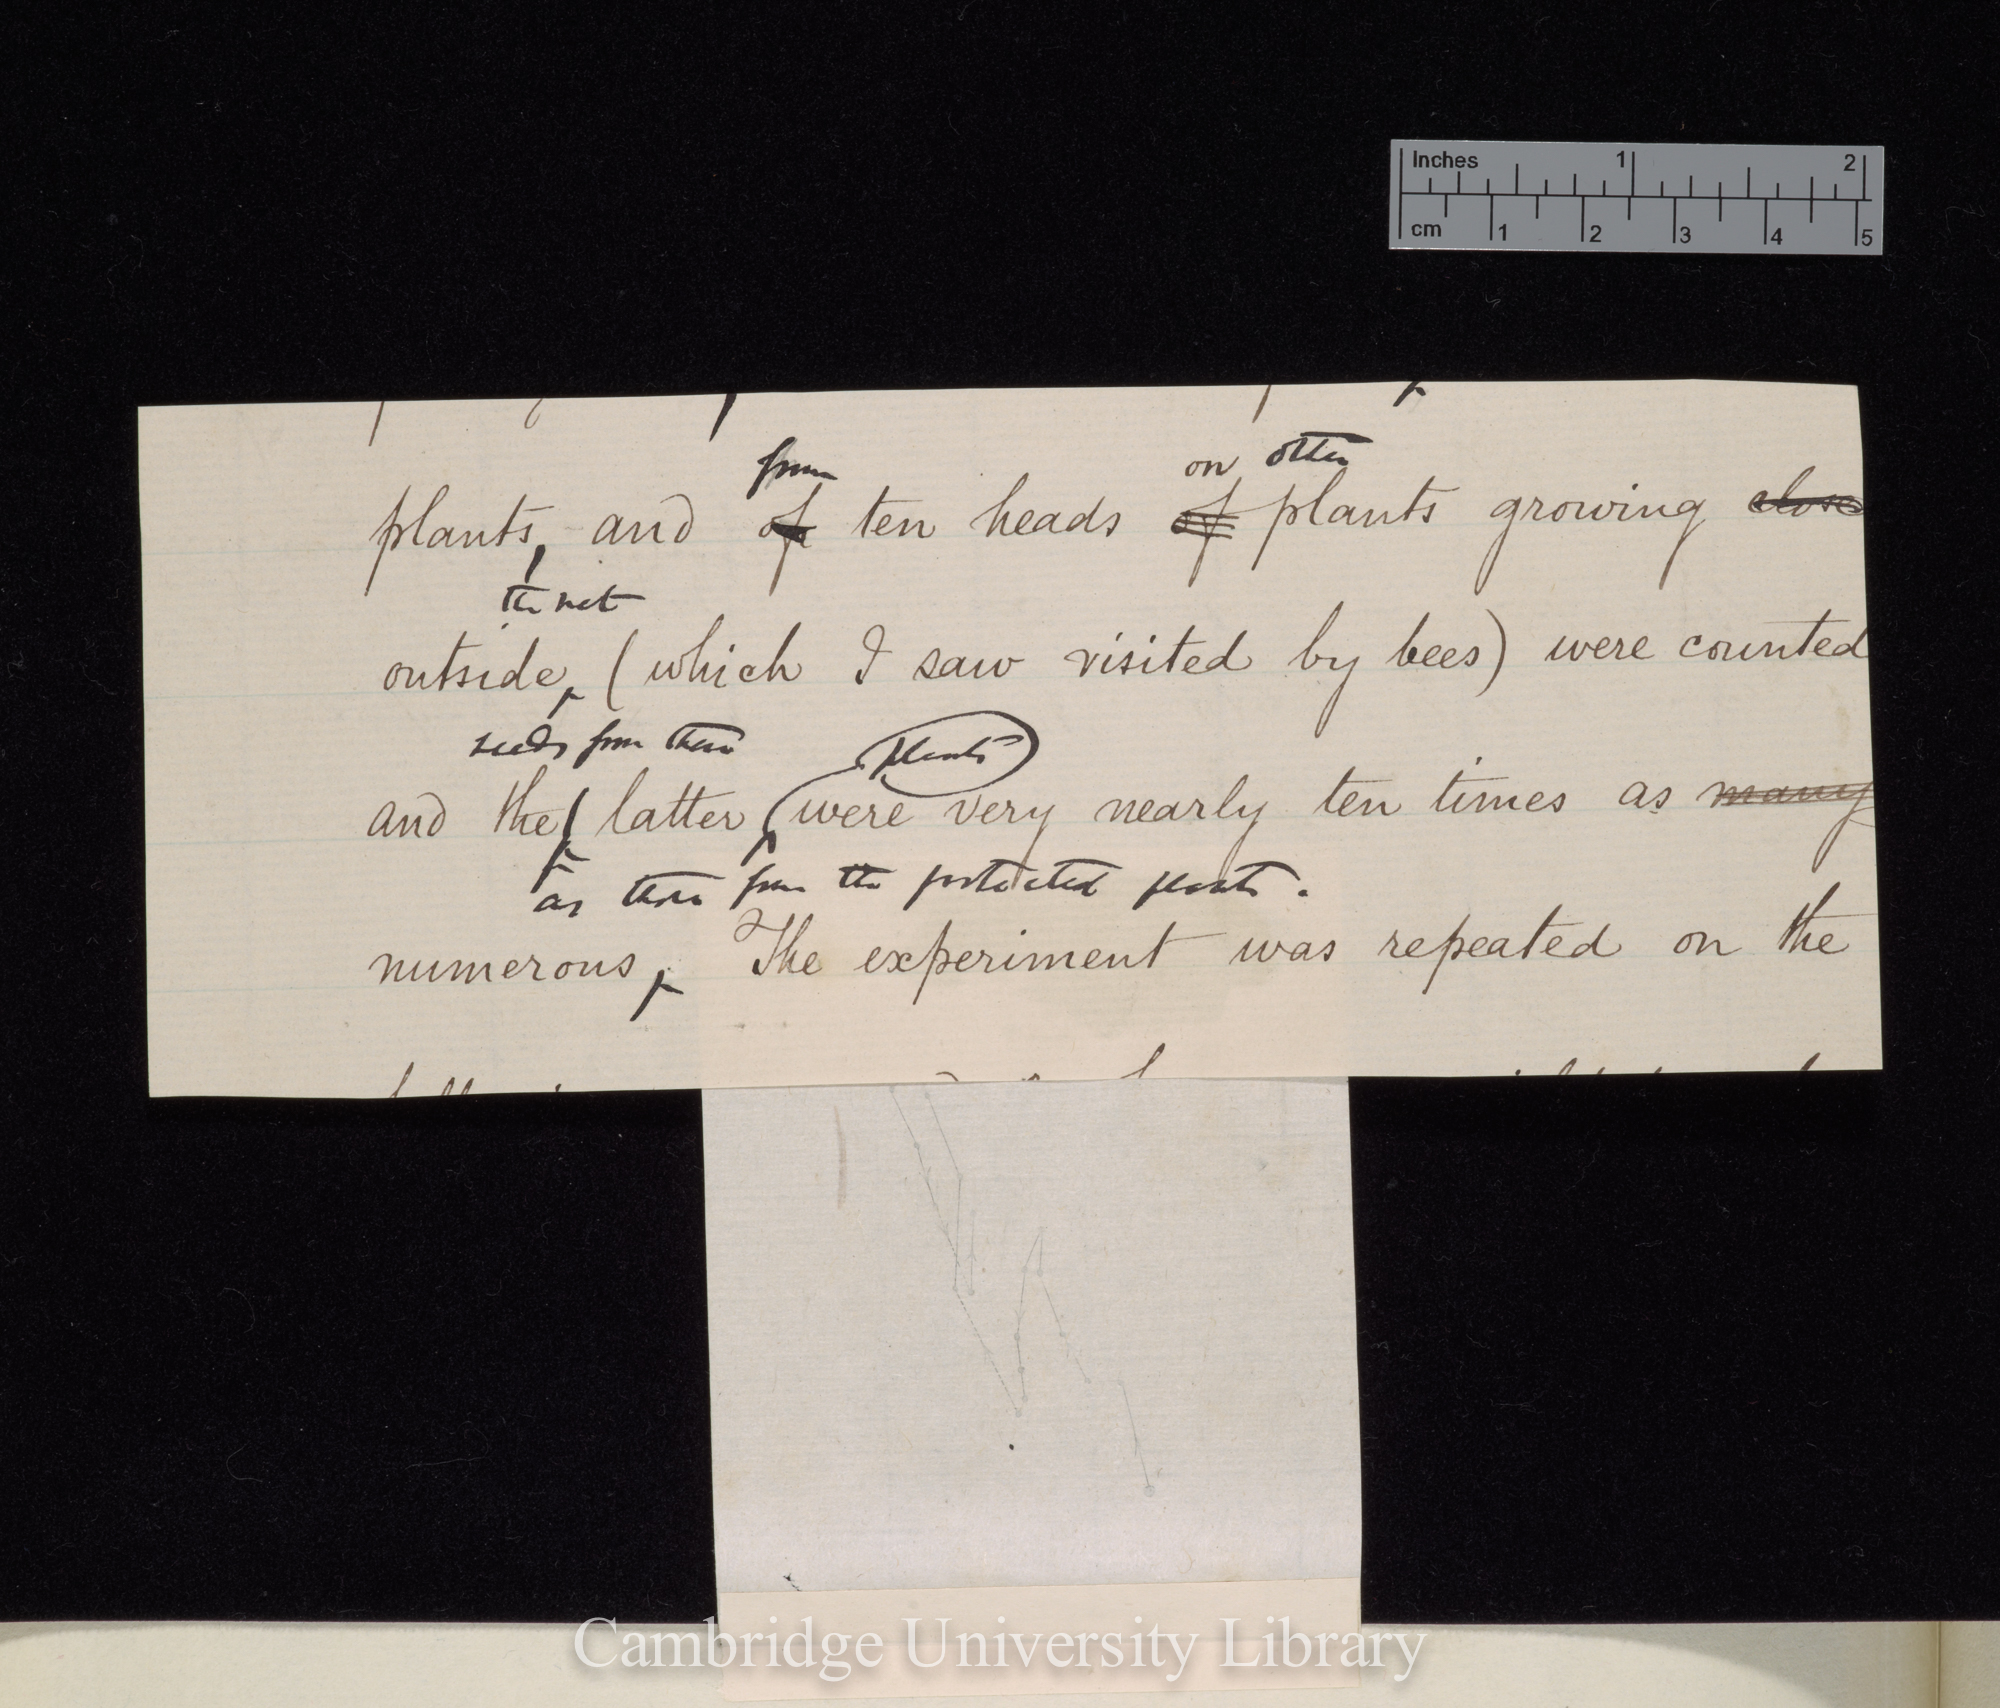 Inches 1 2
cm 1 2 3 4 5
from on other
plants, and of ten heads of plants growing close
the net
outside, (which I saw visited by bees) were counted
seeds from these plants
and the latter were very nearly ten times as many
as those from the protected plants.
numerous, The experiment was repeated on the
Cambridge University Library